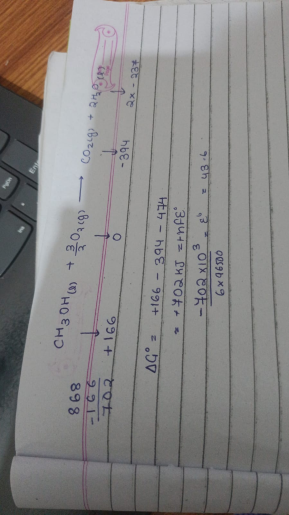 CH3OH(l) + 3/2 O2(g) ⟶ CO2(g) + 2H2O(l)
868
-166
702
+166
0
-394
2x - 237
ΔG° = +166 - 394 - 474
= +702 KJ = +nfE°
-702 x 10³ / 6 x 96500 = E° = 43.6